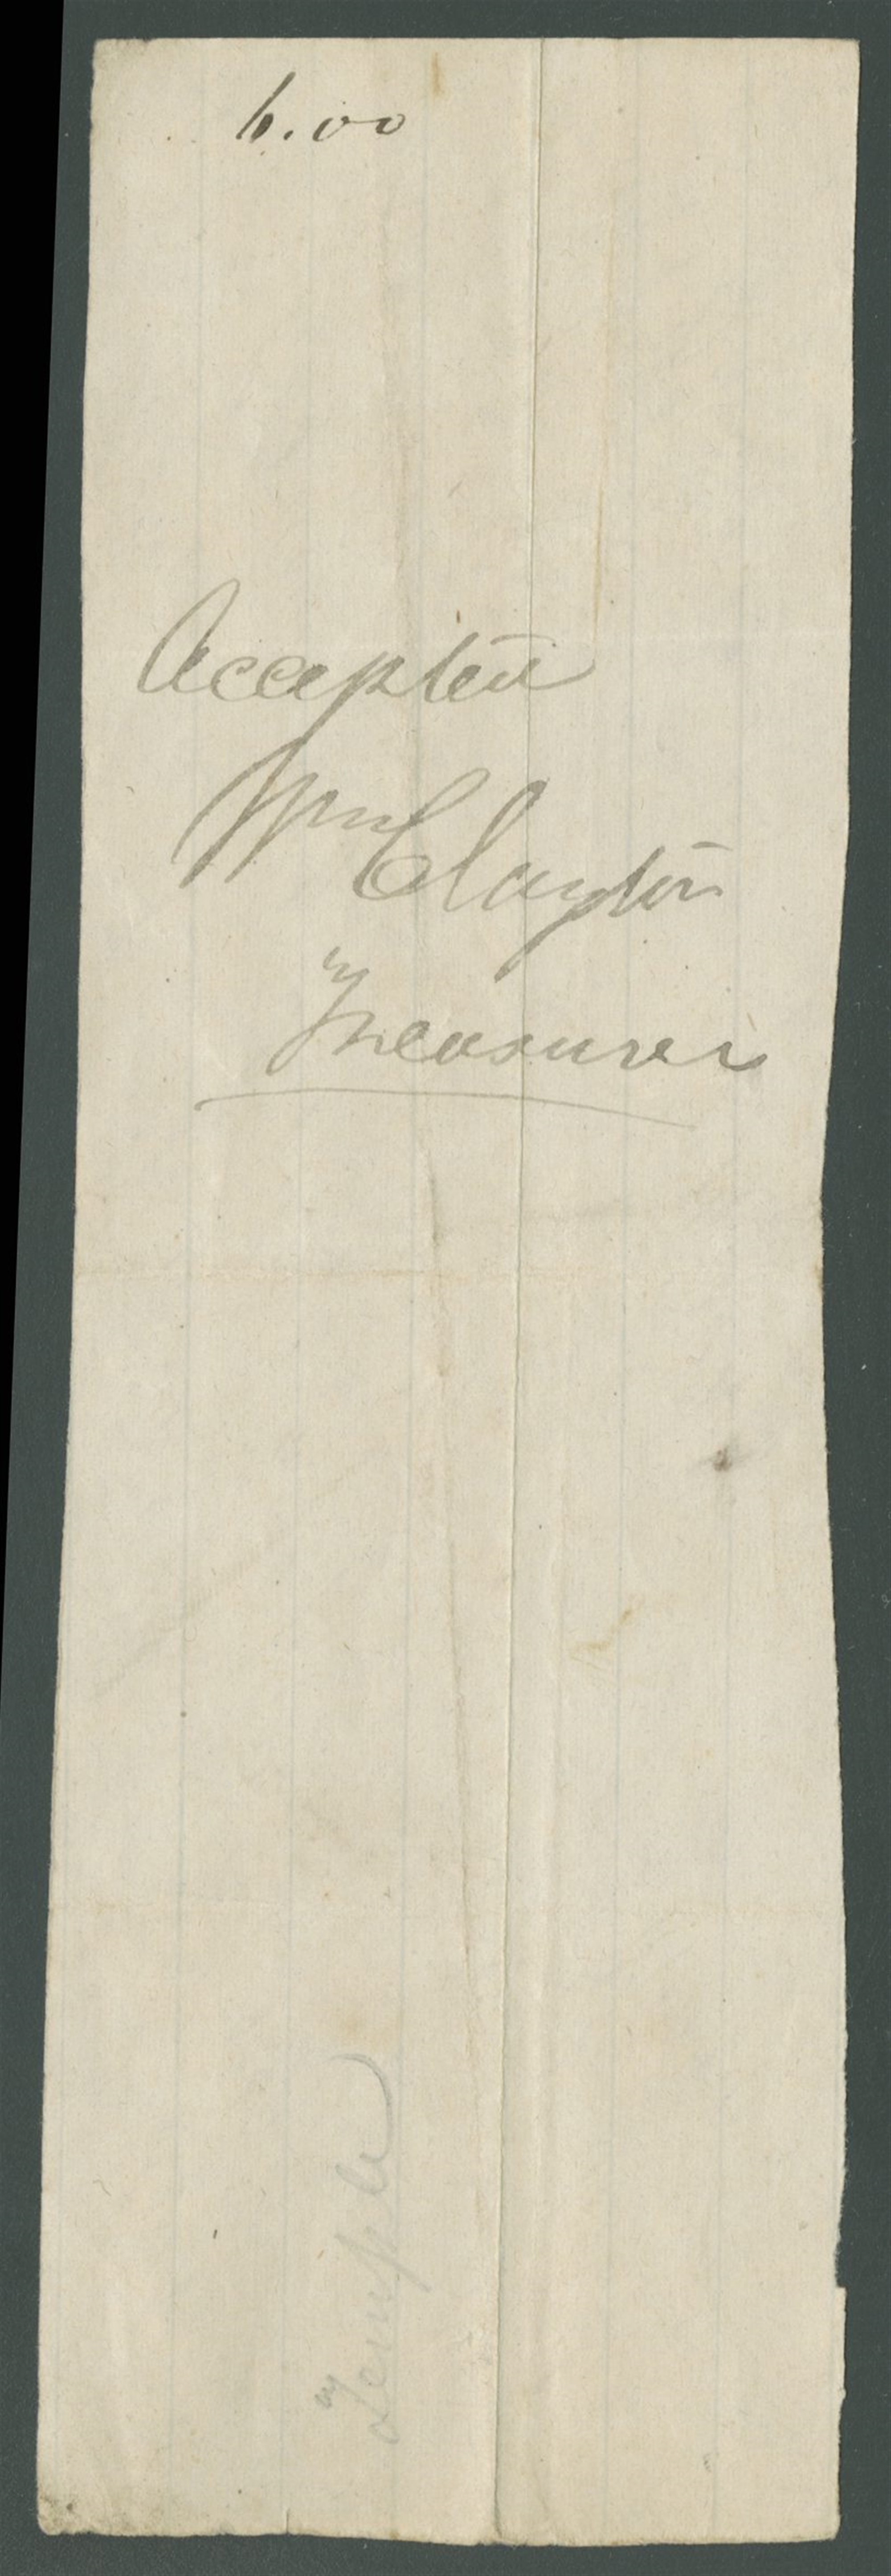 6.00
Accepted
Wm Clayton
Treasurer
Temple